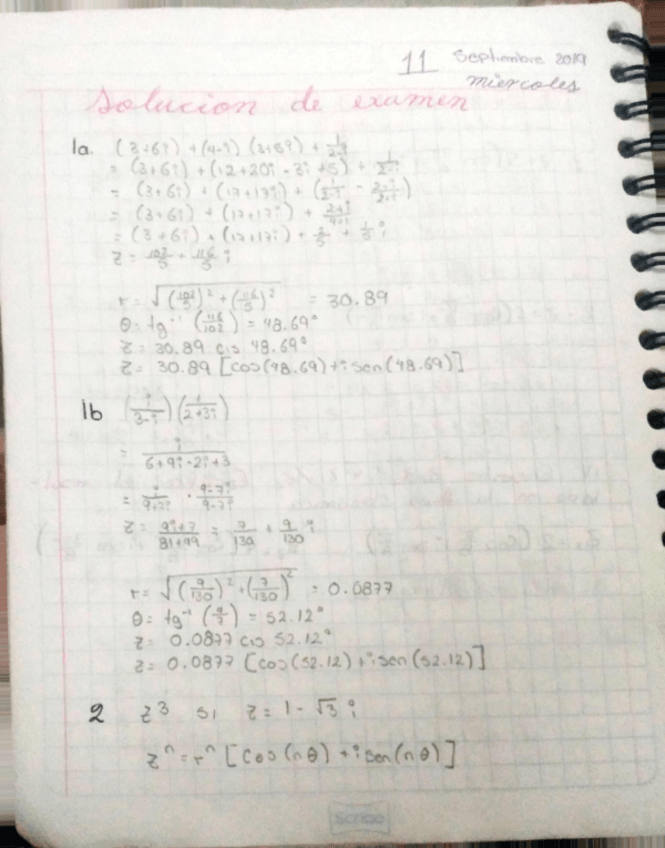 11 Septiembre 2019
miercoles
solucion de examen
1a. (3+6i) + (4-i)(3+5i) + 1/2-i
= (3+6i) + (12+20i-3i+5) + 1/2-i
= (3+6i) + (17+17i) + (1/2-i · 2+i/2+i)
= (3+6i) + (17+17i) + 2+i/4+1
= (3+6i) + (17+17i) + 2/5 + 1/5 i
z = 102/5 + 116/5 i
r = √(102/5)² + (116/5)² = 30.89
θ = tg⁻¹ (116/102) = 48.69°
z = 30.89 cis 48.69°
z = 30.89 [cos(48.69)+i sen(48.69)]
1b (i/3-i)(1/2+3i)
= i/6+9i-2i+3
= i/9+7i · 9-7i/9-7i
z = 9i+7/81+49 = 7/130 + 9/130 i
r = √(9/130)² + (7/130)² = 0.0877
θ = tg⁻¹ (9/7) = 52.12°
z = 0.0877 cis 52.12°
z = 0.0877 [cos(52.12)+i sen(52.12)]
2 z³ si z = 1 - √3 i
zⁿ = rⁿ [cos(nθ) + i sen(nθ)]
Scribe